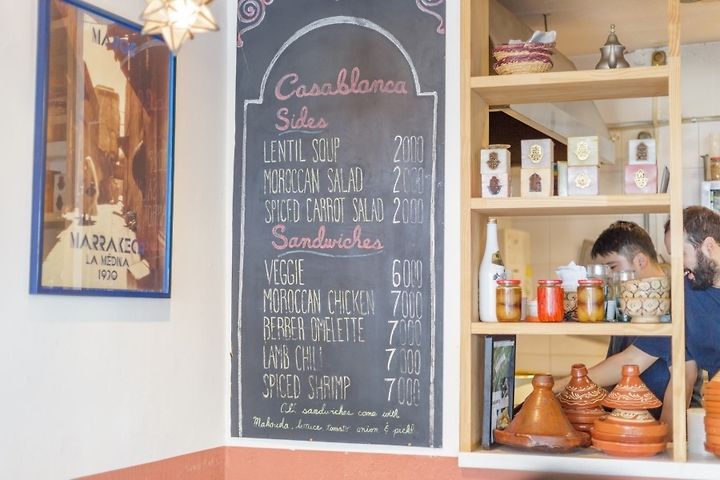 MAROC
MARRAKECH
LA MÉDINA
1930
Casablanca
Sides
LENTIL SOUP 2000
MOROCCAN SALAD 2000
SPICED CARROT SALAD 2000
Sandwiches
VEGGIE 6000
MOROCCAN CHICKEN 7000
BERBER OMELETTE 7000
LAMB CHILI 7000
SPICED SHRIMP 7000
All sandwiches come with
Mahouda, lettuce, tomato, onion & pickl